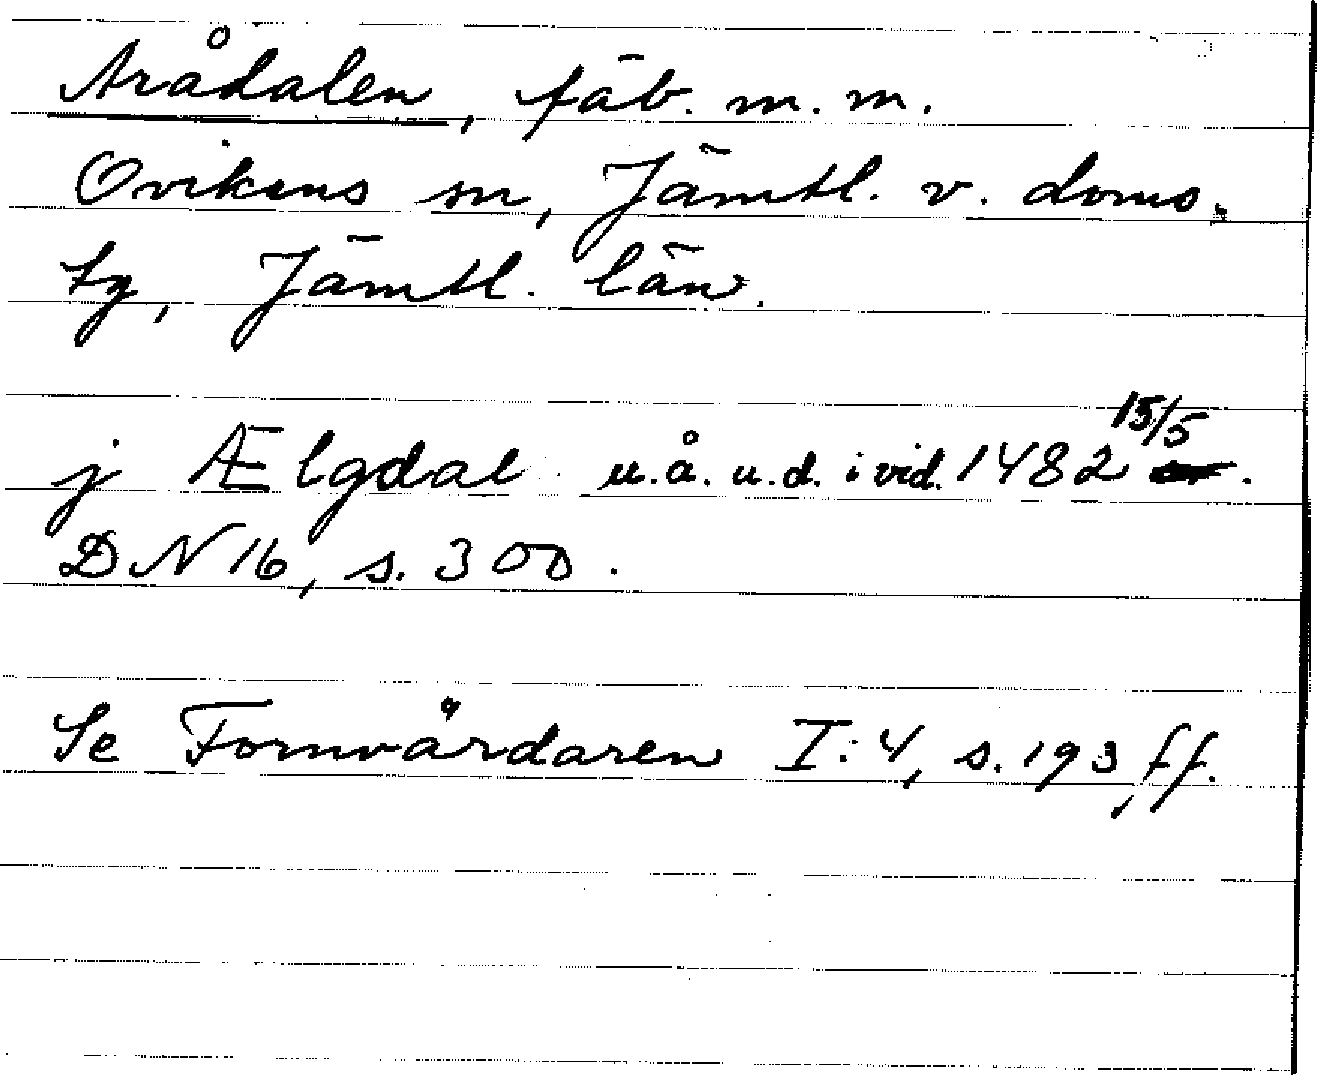 Arådalen, fäb. m. m.
Ovikens sn, Jämtl. v. doms.
tg, Jämtl. län.
j Ælgdal u.å. u.d. i vid. 1482 15/5.
DN 16, s. 300.
Se Fornvårdaren I:4, s. 193 ff.